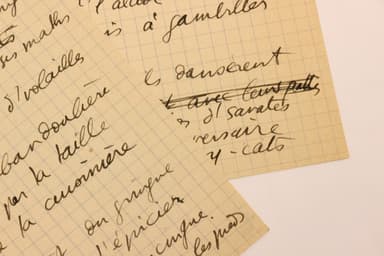 ses maths
d'volailles
bandoulière
par la taille
la cuisinière
du gringue
l'épicier
les pieds
is à gambilles
ls dansèrent
avec leurs patt
s d'savates
ersaire
y-cats